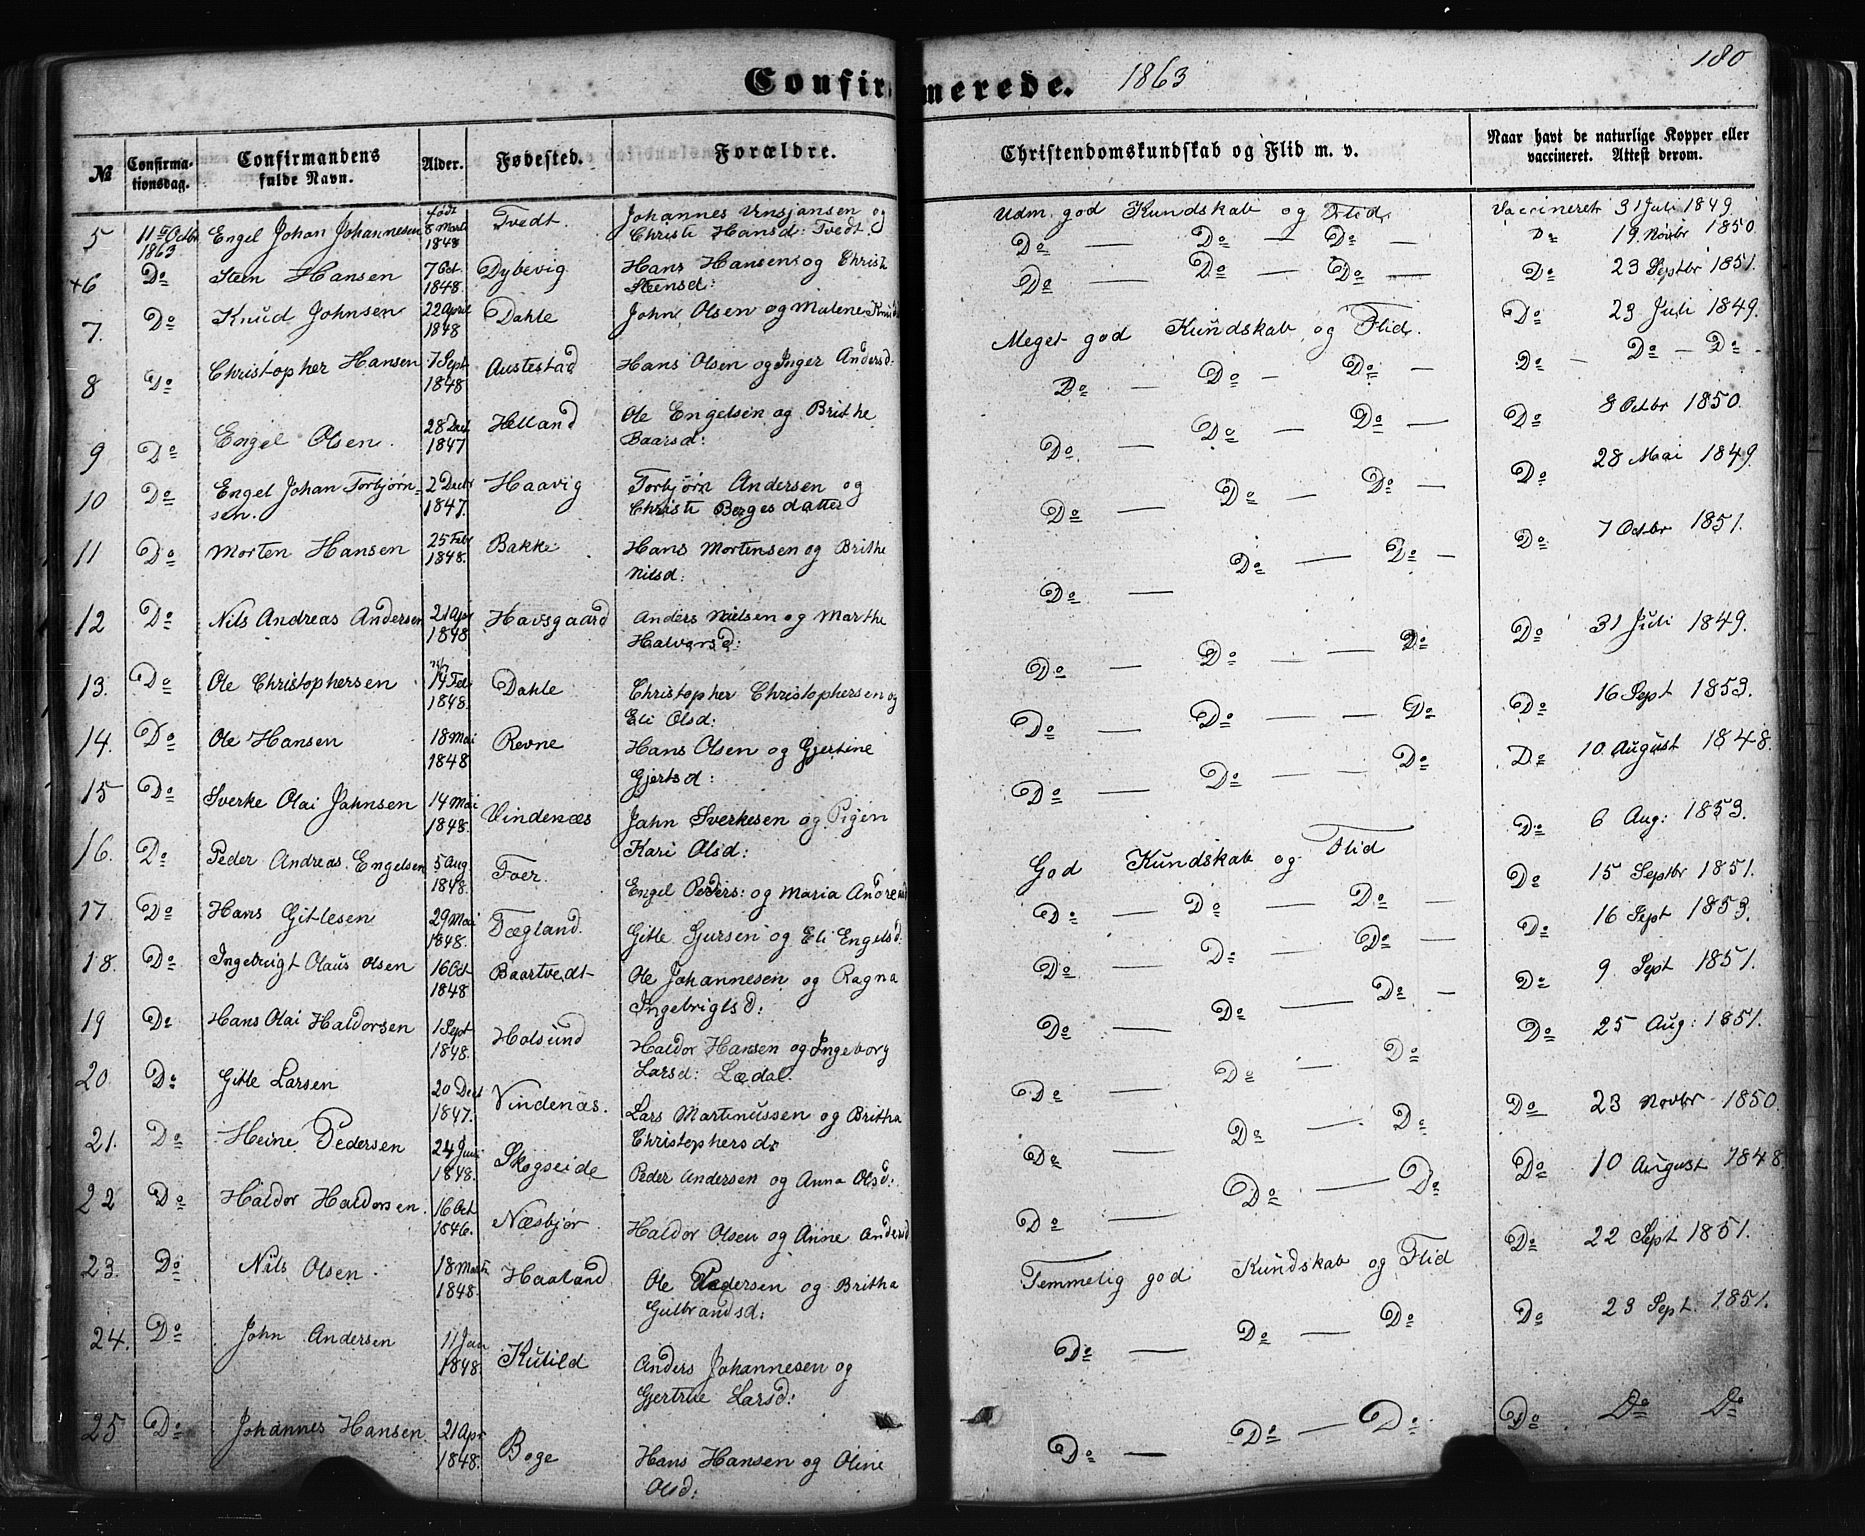 180
Confirmerede. 1863
№ Confirmationsdag. Confirmandens fulde Navn. Alder. Fødested. Forældre. Christendomskundskab og Flid m. v. Naar havt de naturlige Kopper eller vaccineret. Attest derom.
5 11te Octbr 1863 Engel Johan Johannesen født 8 Marts 1848 Tvedt. Johannes og Christi Hansd: Tvedt. Udm. god Kundskab og Flid Vaccineret 31 Juli 1849.
+6 Do Steen Hansen 7 Oct 1848. Dybevig Hans Hansen og Christi Steensd: Do — Do — Do — Do 19 Novbr 1850
7. Do Knud Johnsen 22 April 1848 Dahle John Olsen og Malene Do — Do — Do — Do 23 Septbr 1851.
8 Do Christopher Hansen 7 Sept 1848 Austestad Hans Olsen og Inger Andersd. Meget god Kundskab og Flid. Do 23 Juli 1849.
9 Do Engel Olsen. 28 Dect 1847 Helland Ole Engelsen og Brithe Baarsd: Do — Do — Do — Do — Do — Do
10 Do Engel Johan Torbjørnsen. 2 Decbr 1847. Haavig Torbjørn Andersen og Christi Borgesdatter Do — Do — Do — Do 8 Octbr 1850.
11 Do Morten Hansen 25 Febr 1848. Bakke Hans Mortensen og Brithe Nilsd: Do — Do — Do — Do 28 Mai 1849.
12 Do Nils Andreas Andersen 21 Apr 1848 Havsgaard Anders Nielsen og Marthe Halvorsd: Do — Do — Do — Do 7 Octbr 1851.
13. Do Ole Christophersen 14 Feb 1848. Dahle Christopher Christophersen og Eli Olsd: Do — Do — Do Do 31 Juli 1849.
14. Do Ole Hansen 18 Mai 1848 Revne Hans Olsen og Gjertine Gjertsd: Do — Do — Do Do 16 Sept 1853.
15 Do Sverke Olai Jahnsen 14 Mai 1848. Vindenæs Jahn Sverkesen og Pigen Kari Olsd: Do — Do — Do Do 10 August 1848.
16. Do Peder Andreas Engelsen 5 Aug 1848. Foer. Engel Peders: og Maria God Kundskab og Flid Do 6 Aug: 1853.
17. Do Hans Gitlesen 29 Mai 1848. Tægland. Gitle Sjursen og Eli Engelsd. Do — Do — Do — Do 15 Septbr 1851.
18. Do Ingebrigt Olaus Olsen 16 Oct 1848 Baartvedt Ole Johannesen og Ragna Ingebrigtsd: Do — Do — Do — Do 16 Sept 1853.
19 Do Hans Olai Haldorsen 1 Sept 1848. Holsund Haldor Hansen og Ingeborg Larsd: Lædal. Do — Do — Do — Do 9 Sept 1851.
20 Do Gitle Larsen 20 Dect 1847. Vindenæs. Lars Martinussen og Britha Christophersd: Do — Do — Do Do 25 Aug: 1851.
21. Do Heine Pedersen 24 Juni 1848. Skogseide Peder Andersen og Anna Olsd: Do — Do — Do Do 23 Novbr 1850.
22 Do Haldor Haldorsen. 16 Oct 1846. Næsbjør. Haldor Olsen og Anne Andersd Do — Do — Do Do 10 August 1848.
23. Do Nils Olsen. 18 Marts 1848. Haaland Ole Pedersen og Britha Gulbrandsd: Temmelig god Kundskab og Flid Do 22 Sept 1851.
24. Do John Andersen 11 Jan 1848. Kutild Anders Johannesen og Gjertrue Larsd: Do — Do — Do Do 23 Sept. 1851.
25 Do Johannes Hansen. 21 Apr 1848. Boge Hans Hansen og Oline Olsd: Do — Do — Do Do Do Do